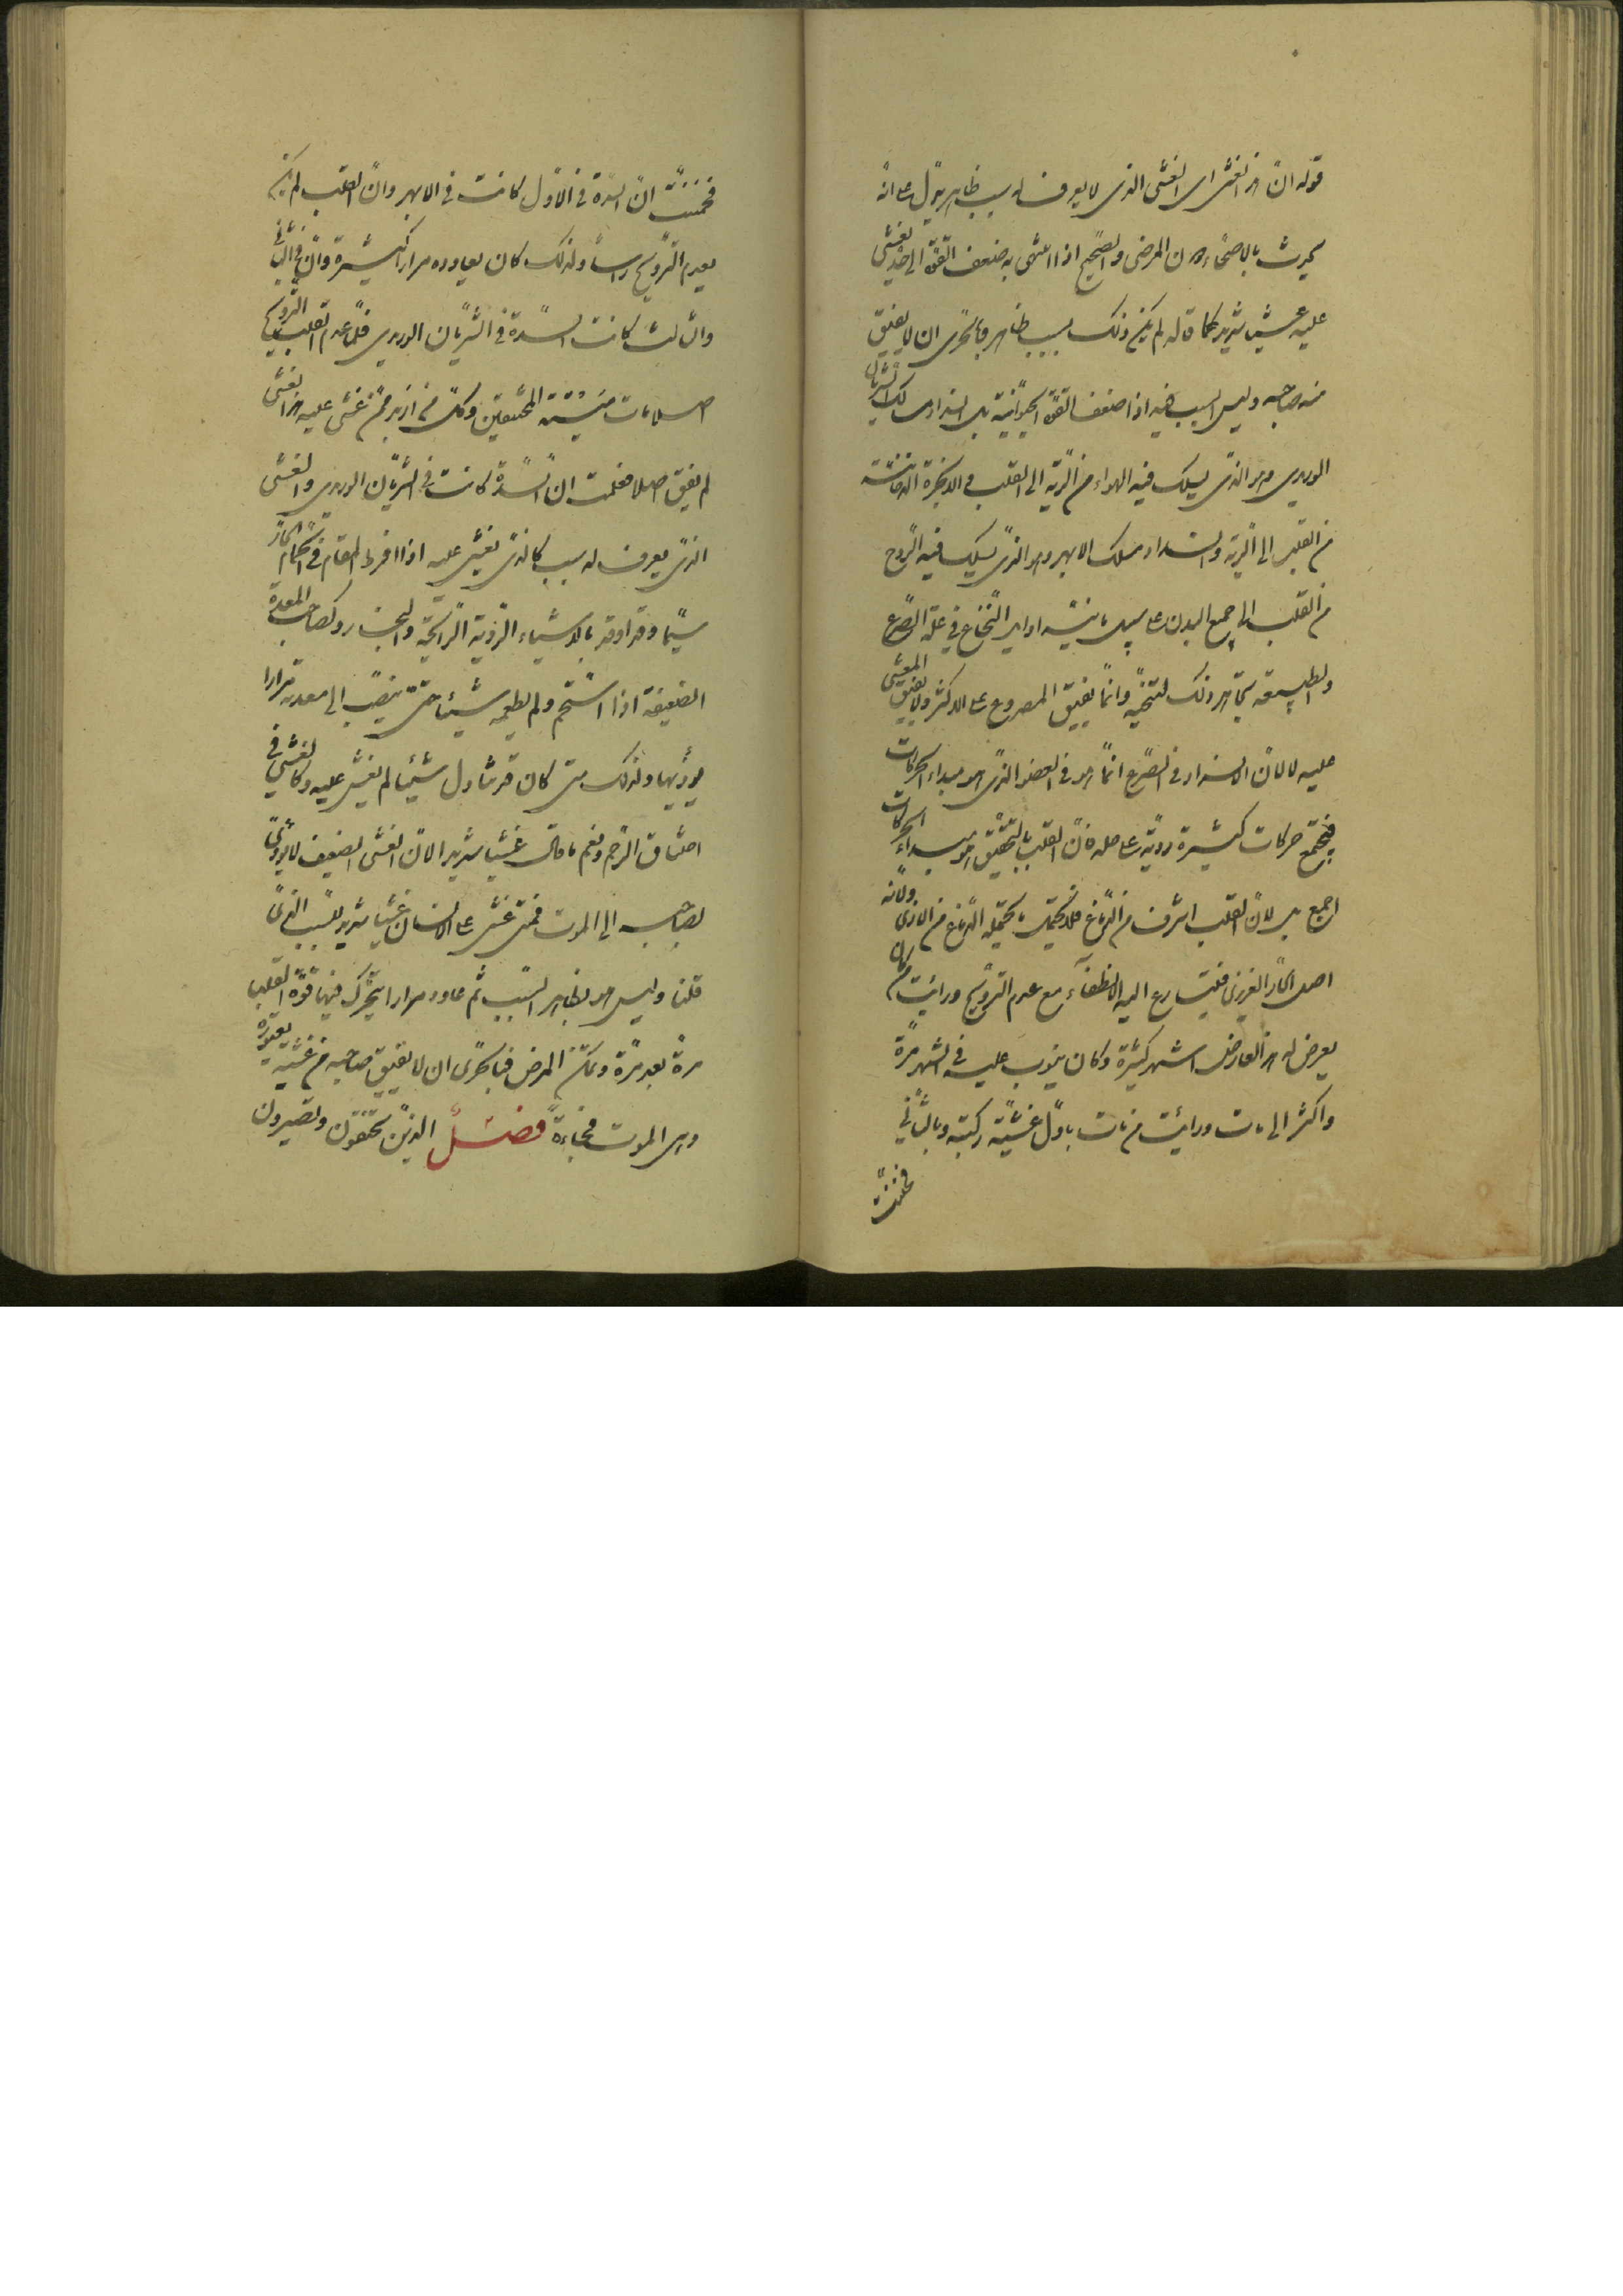 قوله انّ هذا الغشى اى الغشى الذى لا يعرف له سبب ظاهر يدلّ على انّه
يحدث بالاصحّاء دون المرضى والصّحيح اذا انتهى به ضعف القوّة الى حدّ يغشى
عليه غشيا شديدا كما قاله لم يكن ذلك بسبب ظاهر فبالحرى ان لا يفيق
منه صاحبه وليس السبب فيه اذا ضعف القوّة الحيوانيّة بل انسداد مسالك الشريان
الوريدى وهو الذى يسلك فيه الهواء من الرّية الى القلب والابخرة الدخانيّة
من القلب الى الرّية وانسداد مسلك الابهر وهو الذى يسلك فيه الرّوح
من القلب الى جميع البدن على سبيل ما ينسد اوايل النّخاع فى علّة الصّرع
والطبيعة تجاهد ذلك لتنحّيه وانّما يفيق المصروع على الاكثر ولا يفيق المغشى
عليه لا لانّ الانسداد فى الصّرع انّما هو فى العضو الذى هو مبداء الحركات
فيجتمع حركات كثيرة رديّة على حله فانّ القلب بالتّحقيق هو مبداء الحركات
اجمع بل لانّ القلب اشرف من الدّماغ فلا يحتمل ما يحتمله الدّماغ من الاذى ولانّه
اصل الحارّ الغريزى فيتسارع اليه الانطفآء مع عدم التّرويح ورايت من كان
يعرض له هذا العارض اشهر كثيرة وكان ينوب عليه فى الشهر مرّة
واكثر الى مات ورايت من مات باوّل غشية ركبته وبالثّانى
فخمنت
فخمنت انّ السّدة فى الاوّل كانت فى الابهر وانّ القلب لم يكن
يعدم التّرويح راسا ولذلك كان يعاوده مرارا كثيرة وانّ فى الثّانى
والثالث كانت السّدة فى الشّريان الوريدى فلمّا عدم القلب التّرويح
اصلا مات ميتة المختنقين وكلّ من ازبد ممّن غشى عليه هذا الغشى
لم يفق اصلا فعلمت انّ السّدة كانت فى الشّريان الوريدى والغشى
الذى يعرف له سبب كالذى يغشى عليه اذا افرط المقام فى الحمام الحارّ
سيّما وقد اوقد بالاشياء الرّدية الرّائحة والبخار وكصاحب المعدة
الضعيفة اذا استحم ولم يطعم شيئا حتّى ينصبّ الى معدته مرارا
يؤذيها ولذلك متى كان قد تناول شيئا لم يغش عليه وكالغشى فى
اختناق الرّحم ونعم ما قال غشيا شديدا لانّ الغشى الضعيف لا يؤدّى
بصاحبه الى الموت فمتى غشى على الانسان غشيا شديدا للسّبب الذى
قلنا وليس هو بظاهر السّبب ثم عاود مرارا يتحرّك فيها قوّة القلب
مرّة بعد مرّة وتمكّن المرض فبالحرى ان لا يفيق صاحبه من غشية يعتوره
وهى الموت فجاءة فصل الذين يختنقون ويصيرون